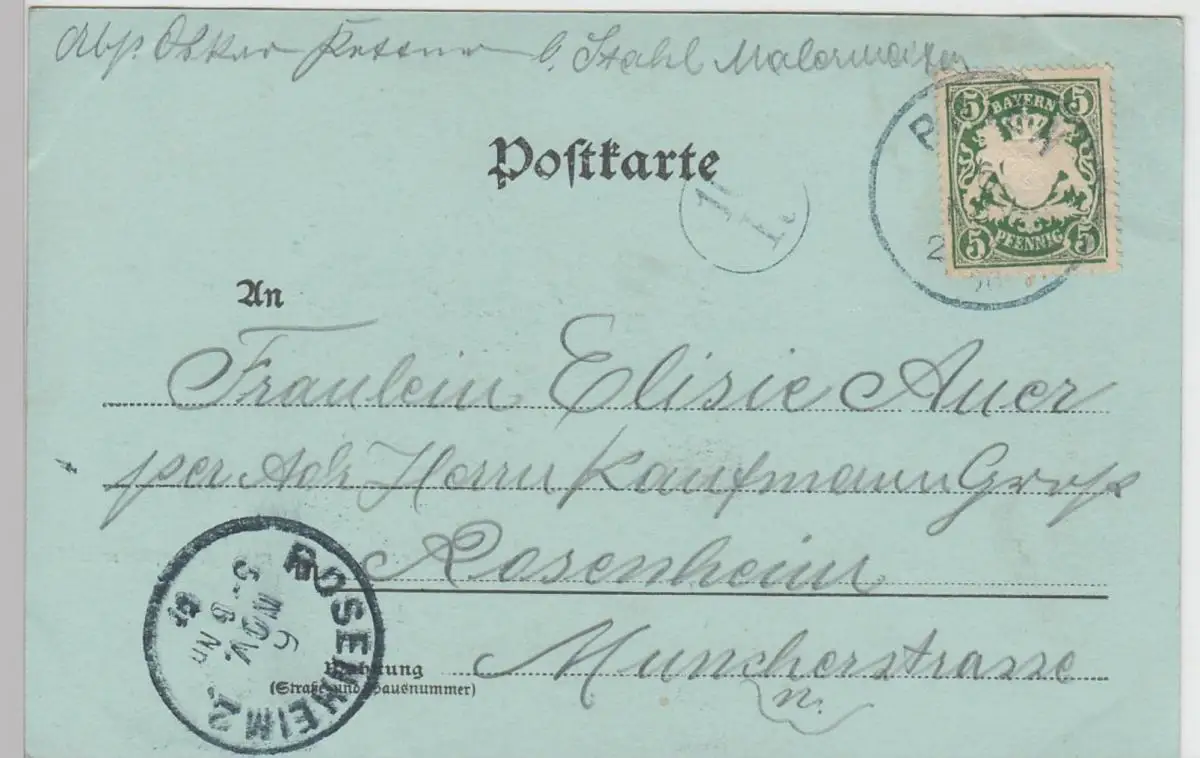 Abs. Oskar b. Stahl Malermeister
Postkarte
5 BAYERN 5
5 PFENNIG 5
An
Fräulein Elisie Auer
per Adr Herrn Kaufmann Groß
Rosenheim
Wohnung
(Straße und Hausnummer)
Muncherstrasse
n.
ROSENHEIM 2
6
NOV.